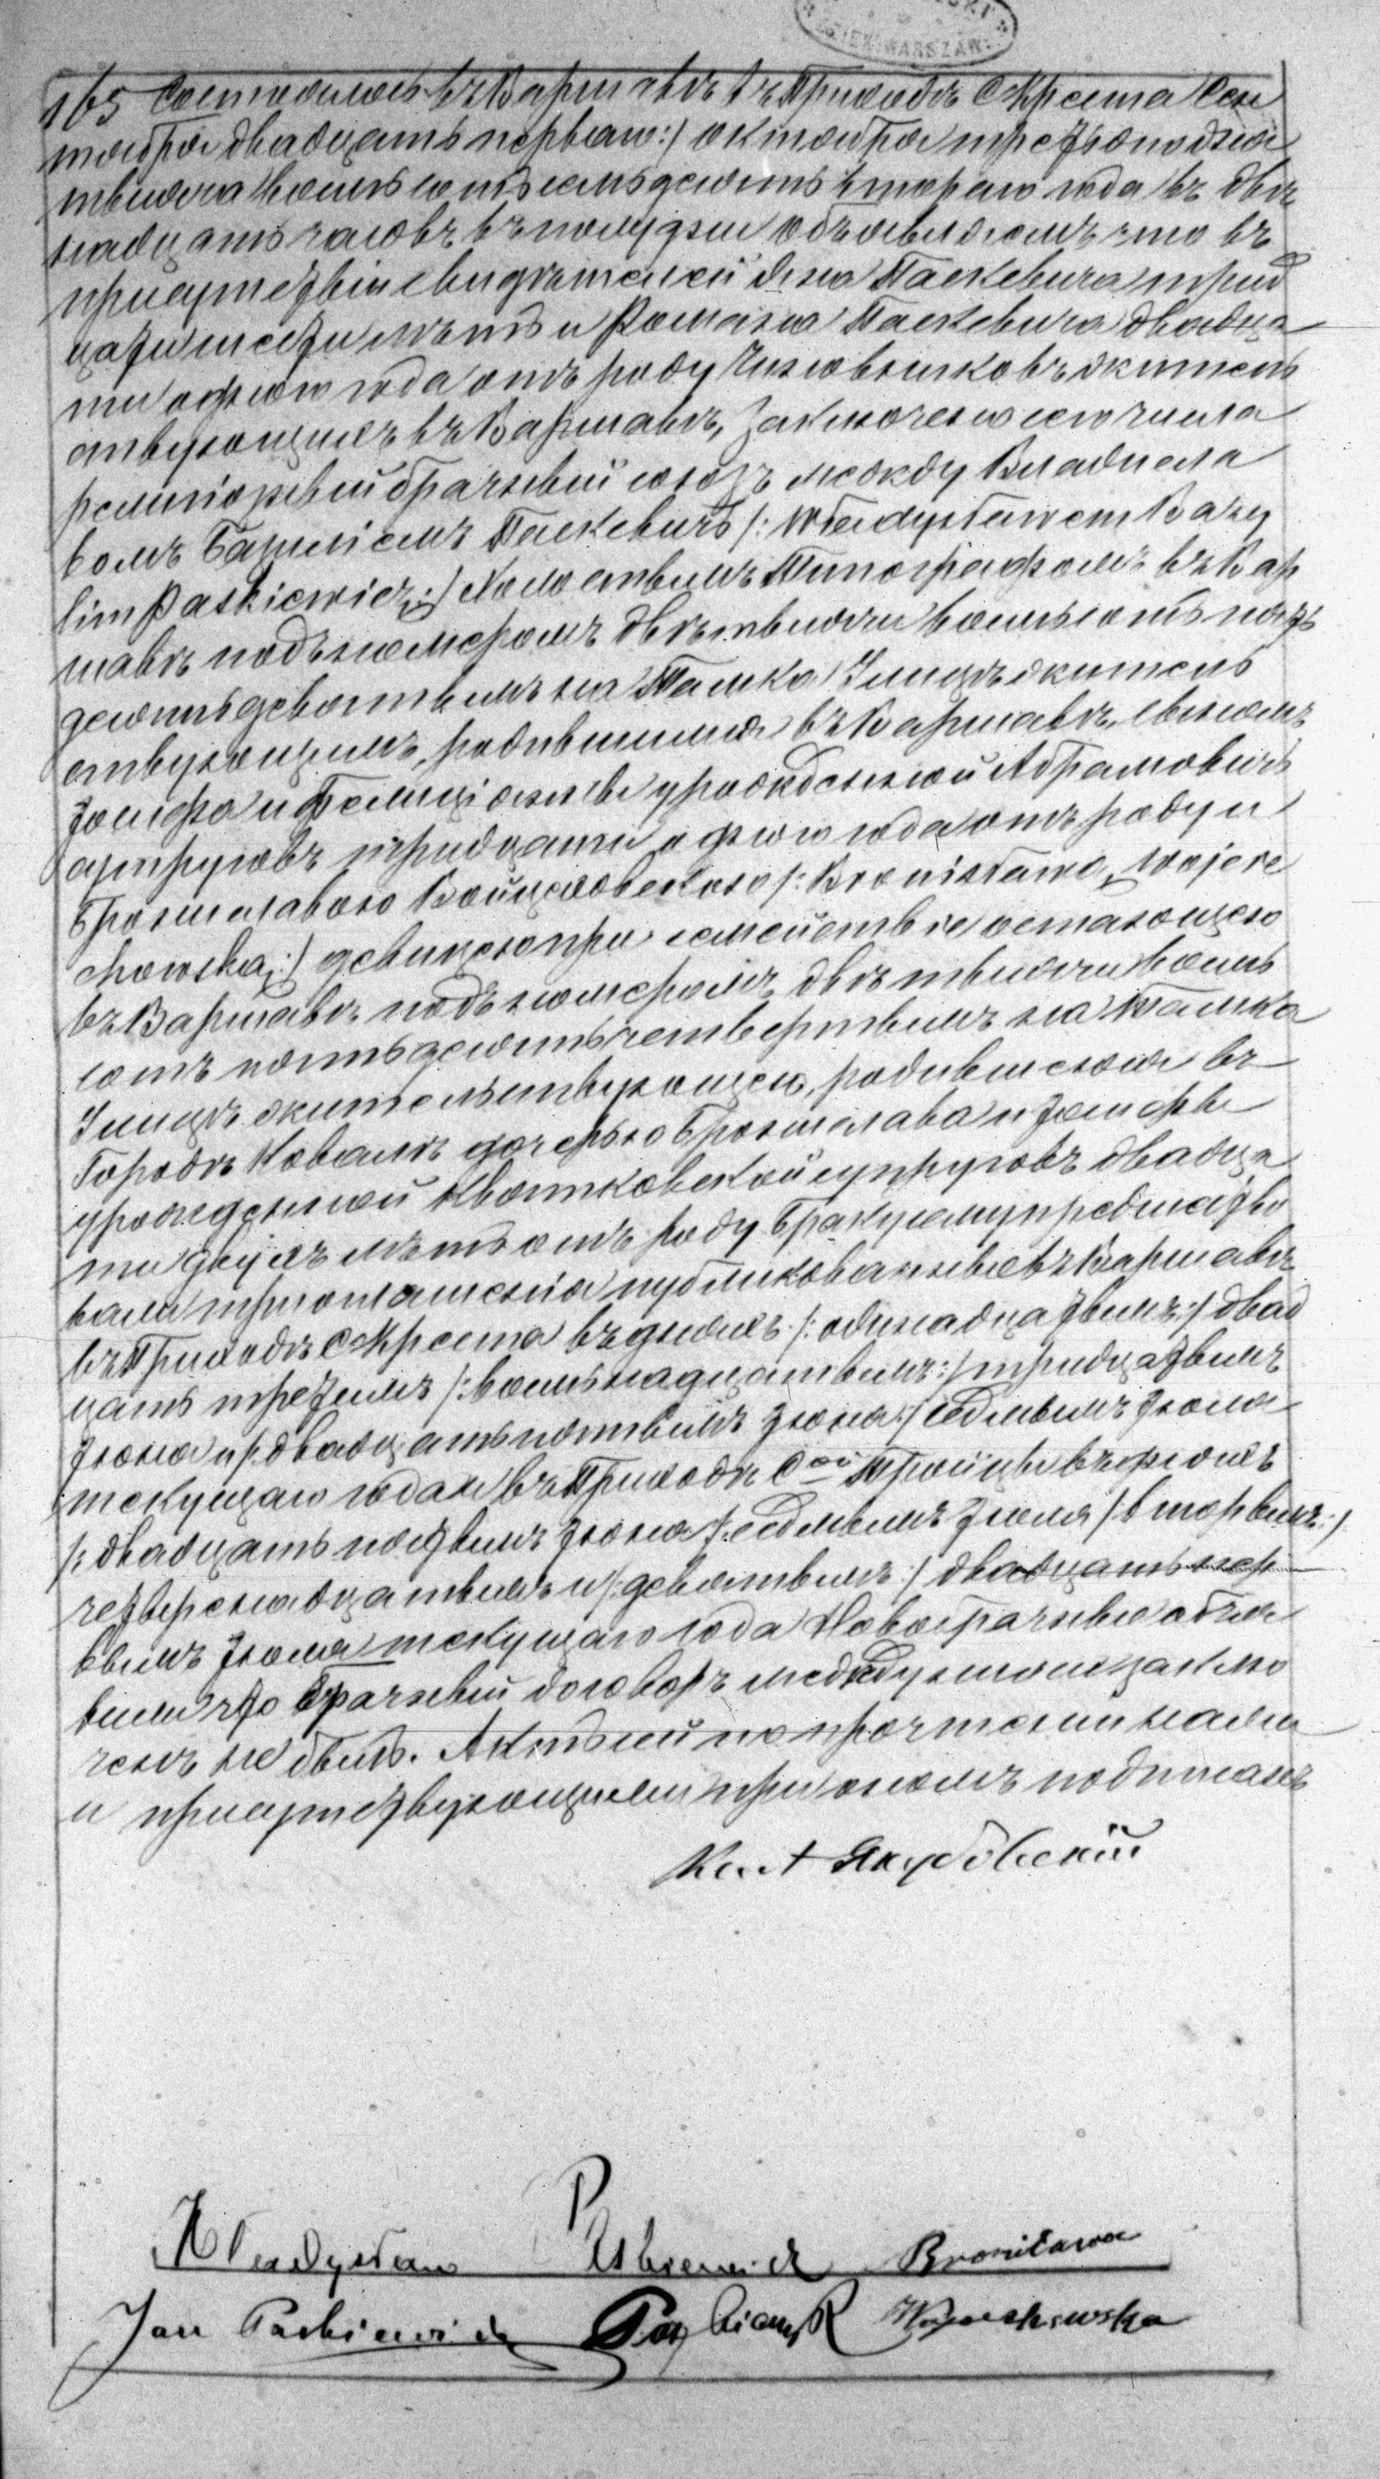 165 Состоялось въ Варшавѣ въ Приходѣ С Креста Сен
тября двадцать перваго:/ октября третьяго дня
тысяча восемьсотъ семьдесятъ втораго года въ двѣ
надцать часовъ въ полудни Объявляемъ что въ
присутствіи свидѣтелей Яна Паскевича трид
цати шести лѣтъ и Романа Паскевича двадца
ти одного года отъ роду Чиновниковъ жител
ствующихъ въ Варшавѣ, заключенъ сего числа
религіозный брачный союзъ между Владисла
вомъ Базиліемъ Паскевичъ /: Władysławem Bazy
lim Paskiewicz:/ Холостымъ Типографомъ въ Вар
шавѣ подъ номеромъ двѣ тысячи восемьсотъ пять
десятъ девятымъ на Тамка Улицѣ жител
ствующимъ, родившимся въ Варшавѣ, сыномъ
Іосифа и Фелиціанны урожденной Абрамовичъ
супруговъ тридцати одного года отъ роду и
Брониславою Войцеховскою /: Bronisławą Wojcie
chowską:/ девицею при семействе остающею
въ Варшавѣ подъ номеромъ двѣ тысячи восемь
сотъ пятьдесятъ четвертымъ на Тамка
Улицѣ жительствующею, родившеюся въ
Городѣ Ковалѣ дочерью Бронислава и Іосифы
урожденной Квятковской супруговъ двадца
ти двухъ лѣтъ отъ роду. Браку сему предшество
вали три оглашенія публикованные въ Варшавѣ
въ Приходѣ С Креста въ дняхъ /: одинадцатымъ:/ двад
цать третьимъ /: восемьнадцатымъ:/ тридцатымъ
Іюня и /: двадцать пятымъ Іюня:/ седьмымъ Іюля
текущаго года и въ Приходѣ С ой Троицы въ дняхъ
/: двадцать пятымъ Іюня:/ седьмымъ Іюля /: вторымъ:/
четырнадцатымъ и /: девятымъ:/ двадцать пер
вымъ Іюля текущаго года Новобрачные объя
вили что Брачный договоръ между ними заклю
ченъ не былъ. Актъ сей по прочтеніи нами
и присутствующими при ономъ подписанъ
Кс. А Якубовскій
Władysław Paskiewicz Bronisława
Jan Paskiewicz Paskiewicz R Wojciechowska